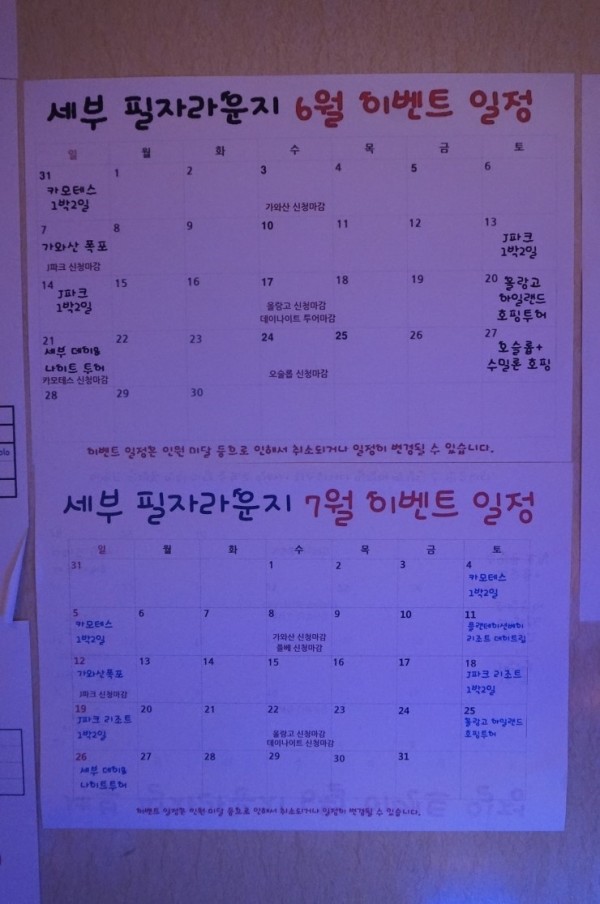 세부 필자라운지 6월 이벤트 일정
일 월 화 수 목 금 토
31 1 2 3 4 5 6
카모테스
1박2일
가와산 신청마감
7 8 9 10 11 12 13
가와산 폭포
J파크 신청마감
J파크
1박2일
14 15 16 17 18 19 20
J파크
1박2일
올랑고 신청마감
데이나이트 투어마감
올랑고
아일랜드
호핑투어
21 22 23 24 25 26 27
세부 데이&
나이트 투어
카모테스 신청마감
오슬롭 신청마감
오슬롭+
수밀론 호핑
28 29 30
이벤트 일정은 인원 미달 등으로 인해서 취소되거나 일정이 변경될 수 있습니다.
세부 필자라운지 7월 이벤트 일정
일 월 화 수 목 금 토
31 1 2 3 4
카모테스
1박2일
5 6 7 8 9 10 11
카모테스
1박2일
가와산 신청마감
플베 신청마감
플랜테이션베이
리조트 데이트립
12 13 14 15 16 17 18
가와산폭포
J파크 신청마감
J파크 리조트
1박2일
19 20 21 22 23 24 25
J파크 리조트
1박2일
올랑고 신청마감
데이나이트 신청마감
올랑고 아일랜드
호핑투어
26 27 28 29 30 31
세부 데이&
나이트투어
이벤트 일정은 인원 미달 등으로 인해서 취소되거나 일정이 변경될 수 있습니다.